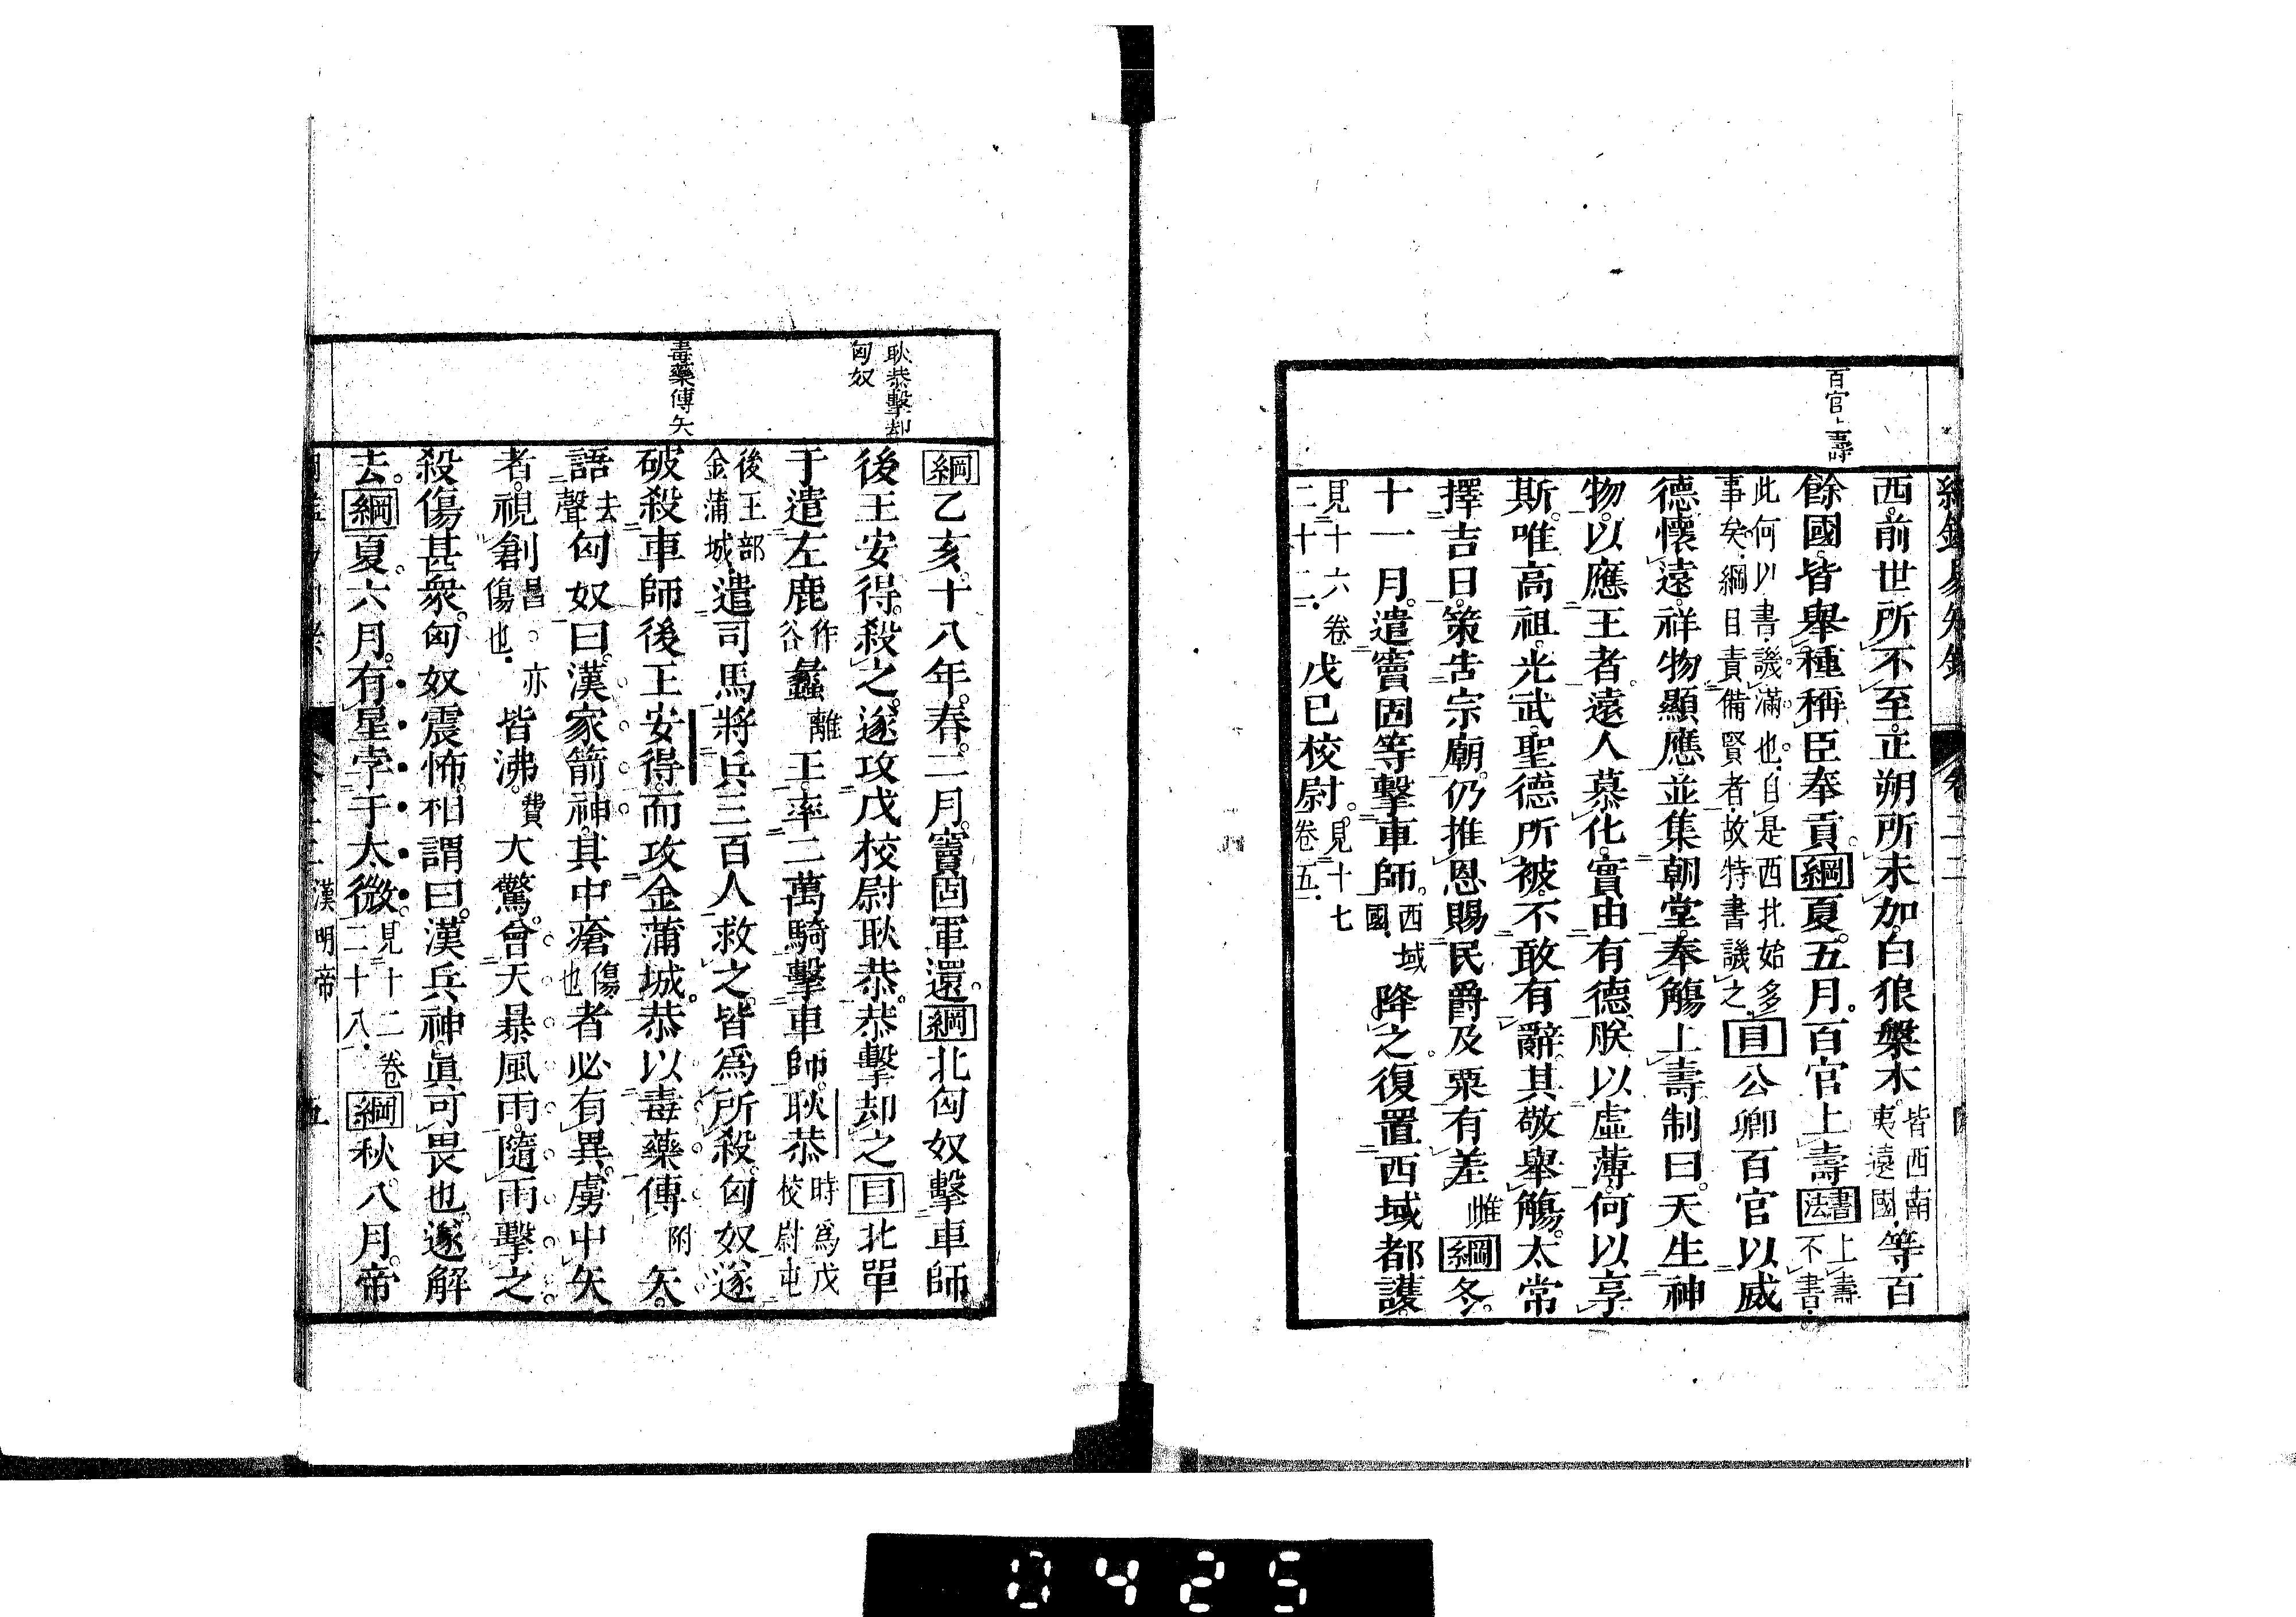 百官上壽
西前世所不至正朔所未加白狼槃木皆西南夷遠國等百
餘國皆舉種稱臣奉貢綱夏五月百官上壽書法上壽不書
此何以書譏滿也自是西北始多事矣綱目責備賢者故特書譏之目公卿百官以威
德懷遠祥物顯應並集朝堂奉觴上壽制曰天生神
物以應王者遠人慕化實由有德朕以虛薄何以享
斯唯高祖光武聖德所被不敢有辭其敬舉觴太常
擇吉日策告宗廟仍推恩賜民爵及粟有差雌綱冬
十一月遣竇固等擊車師西域國降之復置西域都護
見十六卷二十二戊己校尉見十七卷五
耿恭擊却
匈奴
毒藥傅矢
綱乙亥十八年春二月竇固軍還綱北匈奴擊車師
後王安得殺之遂攻戊校尉耿恭恭擊却之目北單
于遣左鹿作谷蠡離王率二萬騎擊車師耿恭時爲戊校尉屯
後王部金蒲城遣司馬將兵三百人救之皆爲所殺匈奴遂
破殺車師後王安得而攻金蒲城恭以毒藥傅附矢
語去聲匈奴曰漢家箭神其中瘡傷也者必有異虜中矢
者視創昌亦傷也皆沸費大驚會天暴風雨隨雨擊之
殺傷甚衆匈奴震怖相謂曰漢兵神眞可畏也遂解
去綱夏六月有星孛于太微見十二卷二十八綱秋八月帝
漢明帝 五
0425